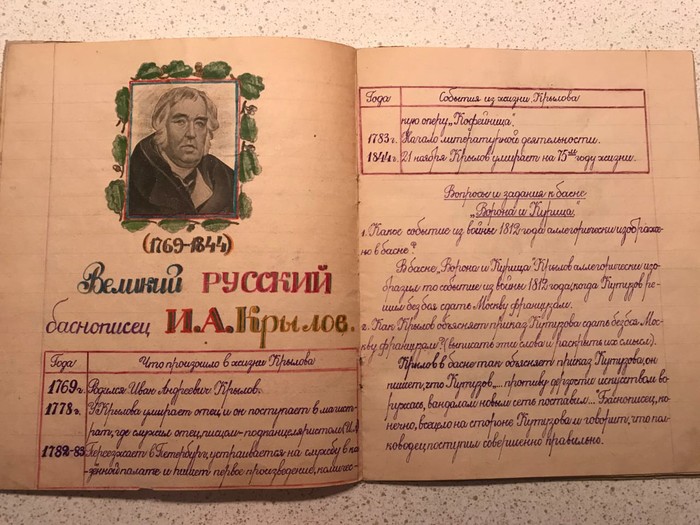 (1769-1844)
Великий РУССКИЙ
баснописец И.А.Крылов.
Года
Что произошло в жизни Крылова
1769г. Родился Иван Андреевич Крылов.
1778г. У Крылова умирает отец, и он поступает в магист-
рат, где служил отец, писцом-подканцеляристом
1782-83 Переезжает в Петербург, устраивается на службу в ка-
зённой палате и пишет первое произведение, комичес-
Года
События из жизни Крылова
кую оперу „Кофейница".
1783г. Начало литературной деятельности.
1844г. 21 ноября Крылов умирает на 75 году жизни.
Вопросы и задания к басне
„Ворона и Курица".
1. Какое событие из войны 1812 года аллегорически изображе-
но в басне?
В басне „Ворона и Курица" Крылов аллегорически изо-
бразил то событие из войны 1812 года, когда Кутузов ре-
шил без боя сдать Москву французам.
2. Как Крылов объясняет приказ Кутузова сдать без боя Мос-
кву французам? (выписать эти слова и раскрыть их смысл).
Крылов в басне так объясняет приказ Кутузова, он
пишет, что Кутузов „... противу дерзости искусством во-
ружась, вандалам новым сеть поставил..." Баснописец, ко-
нечно, всецело на стороне Кутузова и говорит, что пол-
ководец поступил совершенно правильно.